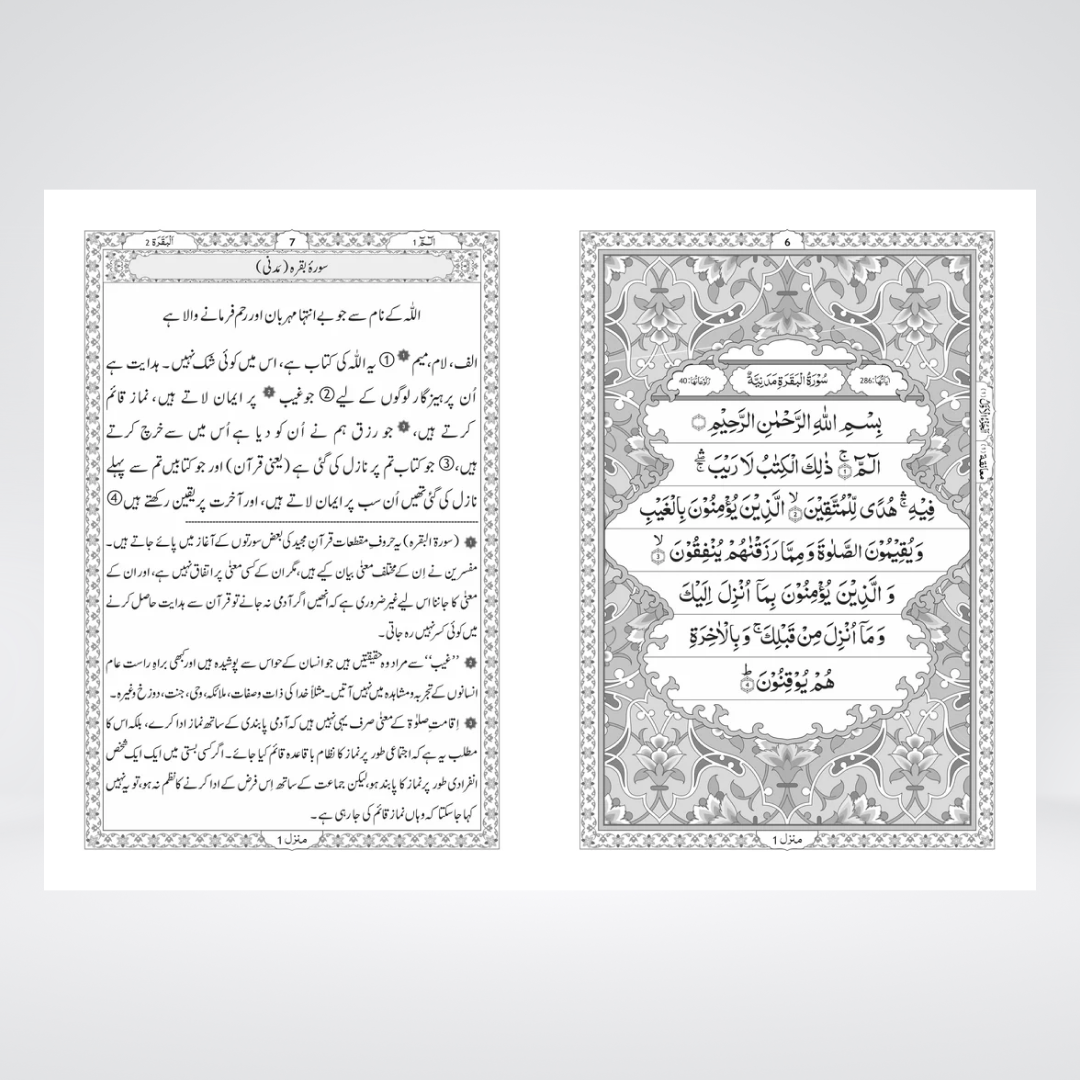 6
اٰیَاتُهَا:286
سُوْرَةُ الْبَقَرَةِ مَدَنِیَّةٌ
رُكُوْعَاتُهَا:40
بِسْمِ اللّٰهِ الرَّحْمٰنِ الرَّحِیْمِ
الٓمّٓ ۚ ۝1 ذٰلِكَ الْكِتٰبُ لَا رَیْبَ ۛۚ
فِیْهِ ۛۚ هُدًی لِّلْمُتَّقِیْنَ ۙ ۝2 الَّذِیْنَ یُؤْمِنُوْنَ بِالْغَیْبِ
وَ یُقِیْمُوْنَ الصَّلٰوةَ وَ مِمَّا رَزَقْنٰهُمْ یُنْفِقُوْنَ ۙ ۝3
وَ الَّذِیْنَ یُؤْمِنُوْنَ بِمَاۤ اُنْزِلَ اِلَیْكَ
وَ مَاۤ اُنْزِلَ مِنْ قَبْلِكَ ۚ وَ بِالْاٰخِرَةِ
هُمْ یُوْقِنُوْنَ ؕ ۝4
منزل 1
الٓمّٓ 1
7
اَلْبَقَرَة 2
سورۂ بقرہ (مَدنی)
اللّٰہ کے نام سے جو بے انتہا مہربان اور رحم فرمانے والا ہے
الف، لام، میم ① یہ اللّٰہ کی کتاب ہے، اس میں کوئی شک نہیں۔ ہدایت ہے
اُن پرہیزگار لوگوں کے لیے ② جو غیب پر ایمان لاتے ہیں، نماز قائم
کرتے ہیں، جو رزق ہم نے اُن کو دیا ہے اُس میں سے خرچ کرتے
ہیں، ③ جو کتاب تم پر نازل کی گئی ہے (یعنی قرآن) اور جو کتابیں تم سے پہلے
نازل کی گئی تھیں اُن سب پر ایمان لاتے ہیں، اور آخرت پر یقین رکھتے ہیں ④
(سورۃ البقرہ) یہ حروفِ مقطعات قرآنِ مجید کی بعض سورتوں کے آغاز میں پائے جاتے ہیں۔
مفسرین نے اِن کے مختلف معنیٰ بیان کیے ہیں، مگر ان کے کسی معنیٰ پر اتفاق نہیں ہے، اور ان کے
معنیٰ کا جاننا اس لیے غیر ضروری ہے کہ انھیں اگر آدمی نہ جانے تو قرآن سے ہدایت حاصل کرنے
میں کوئی کسر نہیں رہ جاتی۔
‘‘غیب’’ سے مراد وہ حقیقتیں ہیں جو انسان کے حواس سے پوشیدہ ہیں اور کبھی براہِ راست عام
انسانوں کے تجربہ و مشاہدہ میں نہیں آتیں۔ مثلاً خدا کی ذات و صفات، ملائکہ، وحی، جنت، دوزخ وغیرہ۔
اِقامتِ صلوٰۃ کے معنیٰ صرف یہی نہیں ہیں کہ آدمی پابندی کے ساتھ نماز ادا کرے، بلکہ اس کا
مطلب یہ ہے کہ اجتماعی طور پر نماز کا نظام باقاعدہ قائم کیا جائے۔ اگر کسی بستی میں ایک ایک شخص
انفرادی طور پر نماز کا پابند ہو، لیکن جماعت کے ساتھ اِس فرض کے ادا کرنے کا نظم نہ ہو، تو یہ نہیں
کہا جاسکتا کہ وہاں نماز قائم کی جا رہی ہے۔
منزل 1